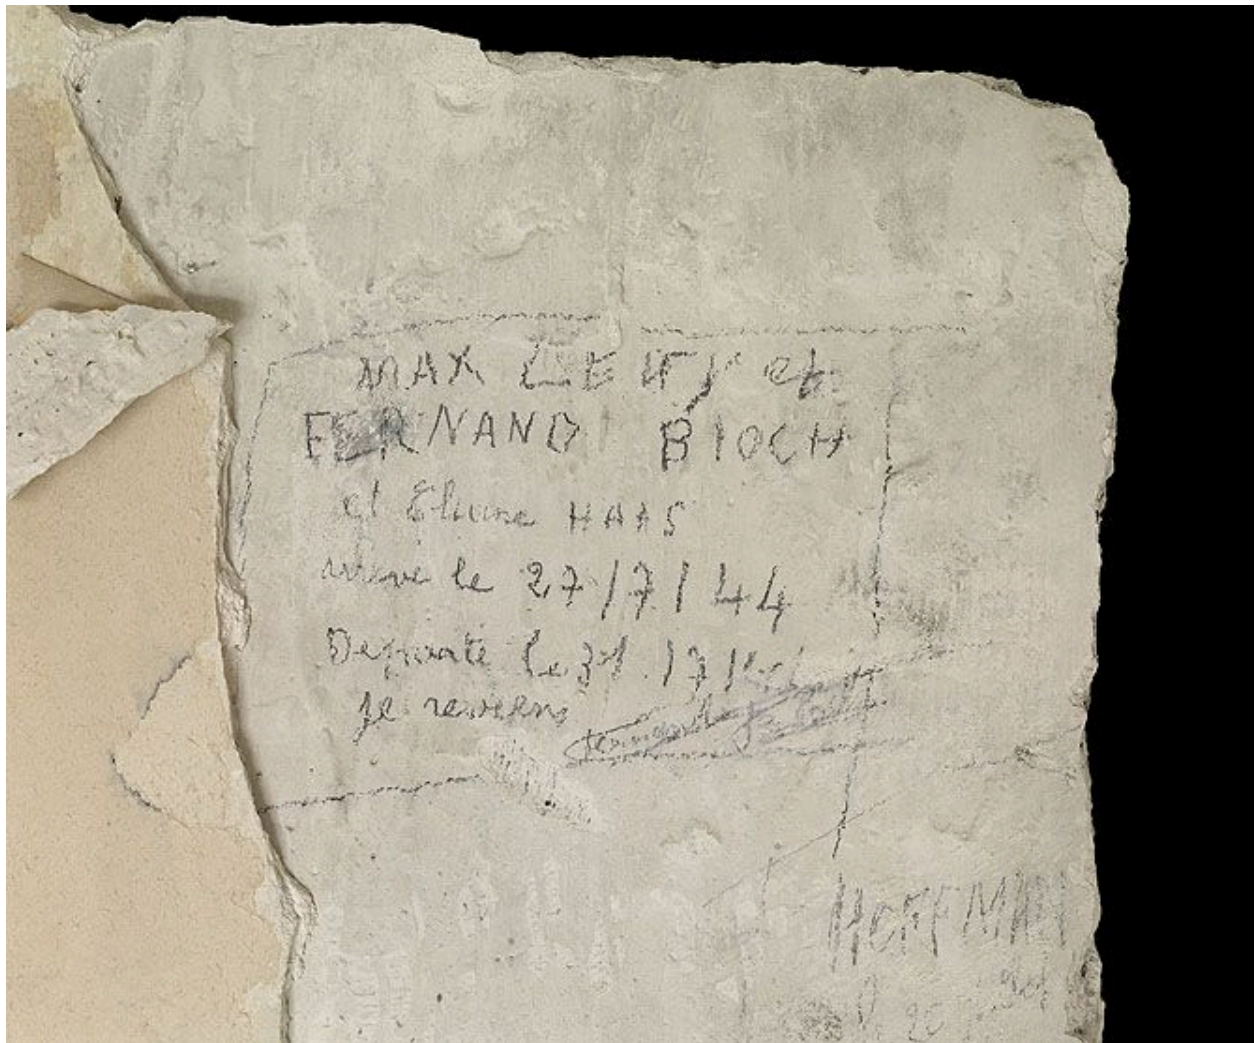 MAX LEVY et
FERNAND BLOCH
et Eliane HAAS
arrivé le 27/7/44
Deporté le 31/7/44
je reviens
HOFFMAN
20